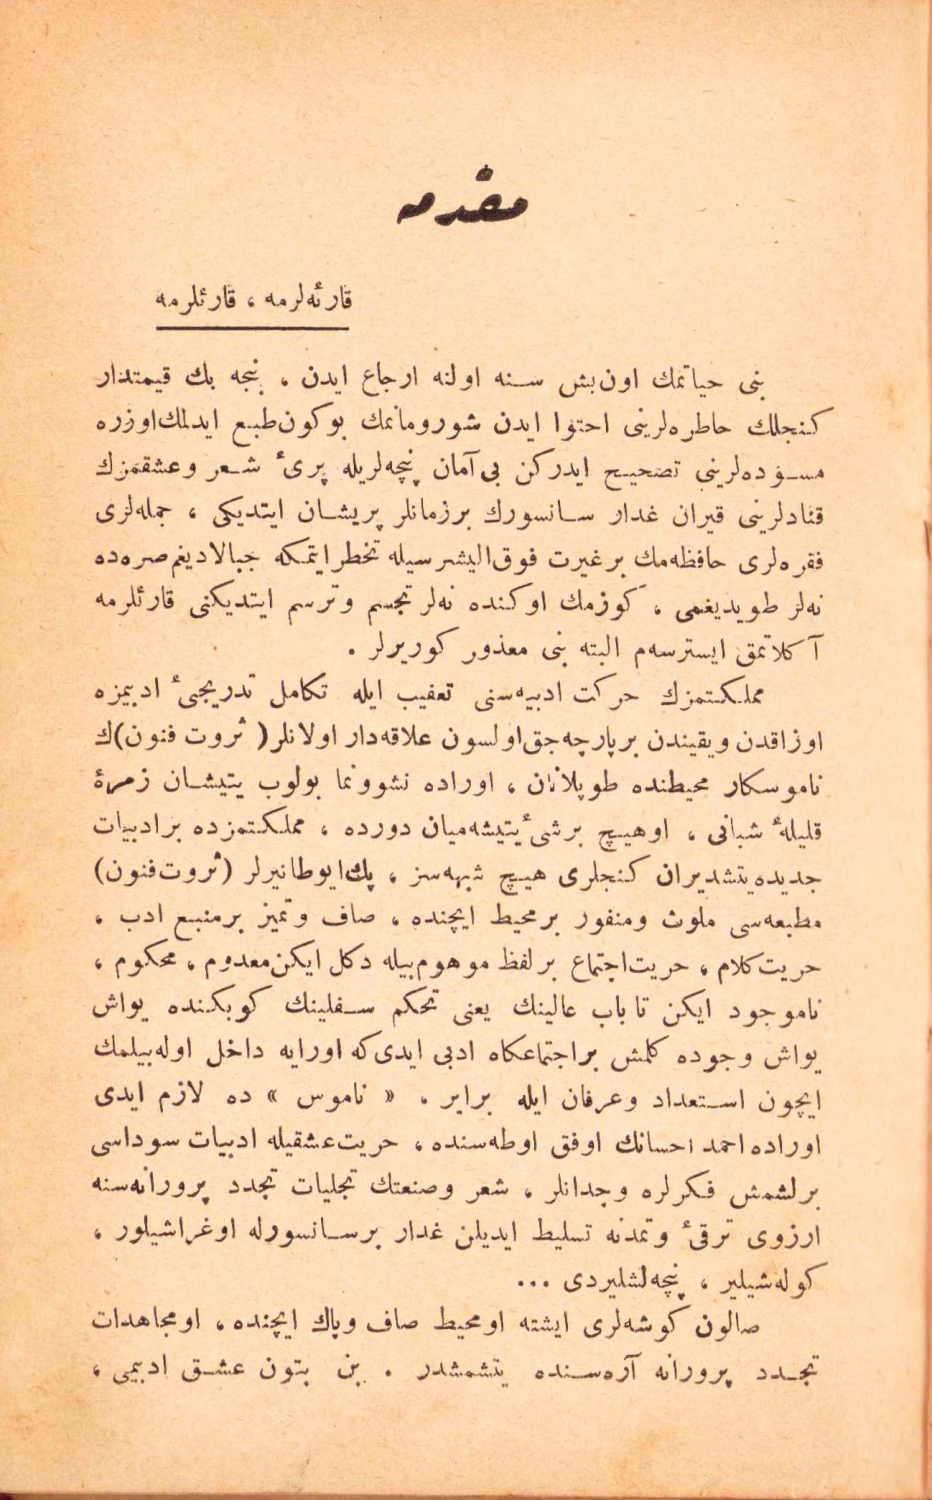 مقدمه
قارئه‌لرمه ، قارئلرمه
بنی حیاتمك اون‌بش سنه اولنه ارجاع ایدن ، نیجه بك قیمتدار
كنجلك خاطره‌لرینی احتوا ایدن شورومانمك بوكون‌طبع ایدلمك‌اوزره
مسوده‌لرینی تصحیح ایدركن بی‌آمان پنچه‌لریله پریٔ شعر وعشقمزك
قنادلرینی قیران غدار سانسورك برزمانلر پریشان ایتدیكی ، جمله‌لری
فقره‌لری حافظه‌مك برغیرت فوق‌البشرسیله تخطرایتمكه جبالادیغم‌صره‌ده
نه‌لر طویدیغمی ، كوزمك اوكنده نه‌لر تجسم وترسم ایتدیكنی قارئلرمه
آكلاتمق ایسترسه‌م البته بنی معذور كوریرلر .
مملكتمزك حركت ادبیه‌سنی تعقیب ایله تكامل تدریجیٔ ادبیمزه
اوزاقدن ویقیندن برپارچه‌جق‌اولسون علاقه‌دار اولانلر( ثروت فنون)ك
ناموسكار محیطنده طوپلانان ، اوراده نشوونما بولوب یتیشان زمرهٔ
قلیلهٔ شبانی ، اوهیچ برشیٔ یتیشه‌میان دورده ، مملكتمزده برادبیات
جدیده‌یتشدیران كنجلری هیچ شبهه‌سز ، پك‌ایوطانیرلر (ثروت‌فنون)
مطبعه‌سی ملوث ومنفور برمحیط ایچنده ، صاف وتمیز برمنبع ادب ،
حریت‌كلام ، حریت‌اجتماع برلفظ موهوم‌بیله دكل ایكن‌معدوم ، محكوم ،
ناموجود ایكن تا باب عالینك یعنی تحكم سفلینك كوبكنده یواش
یواش وجوده كلمش براجتماعكاه ادبی ایدی‌كه اورایه داخل اوله‌بیلمك
ایچون استعداد وعرفان ایله برابر ، « ناموس » ده لازم ایدی
اوراده‌احمد احسانك اوفق اوطه‌سنده ، حریت‌عشقیله ادبیات سوداسی
برلشمش فكرلره وجدانلر ، شعر وصنعتك تجلیات تجدد پرورانه‌سنه
ارزوی ترقیٔ وتمدنه تسلیط ایدیلن غدار برسانسورله اوغراشیلور ،
كوله‌شیلیر ، پنچه‌لشلیردی ...
صالون كوشه‌لری ایشته اومحیط صاف وپاك ایچنده ، اومجاهدات
تجدد پرورانه آره‌سنده یتشمشدر . بن بتون عشق ادبیمی ،